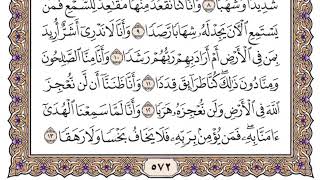 شَدِيدًا وَشُهُبًا ٨ وَأَنَّا كُنَّا نَقْعُدُ مِنْهَا مَقَٰعِدَ لِلسَّمْعِۖ فَمَن
يَسْتَمِعِ ٱلْـَٔانَ يَجِدْ لَهُۥ شِهَابًا رَّصَدًا ٩ وَأَنَّا لَا نَدْرِىٓ أَشَرٌّ أُرِيدَ
بِمَن فِى ٱلْأَرْضِ أَمْ أَرَادَ بِهِمْ رَبُّهُمْ رَشَدًا ١٠ وَأَنَّا مِنَّا ٱلصَّٰلِحُونَ
وَمِنَّا دُونَ ذَٰلِكَۖ كُنَّا طَرَآئِقَ قِدَدًا ١١ وَأَنَّا ظَنَنَّآ أَن لَّن نُّعْجِزَ
ٱللَّهَ فِى ٱلْأَرْضِ وَلَن نُّعْجِزَهُۥ هَرَبًا ١٢ وَأَنَّا لَمَّا سَمِعْنَا ٱلْهُدَىٰٓ
ءَامَنَّا بِهِۦۖ فَمَن يُؤْمِنۢ بِرَبِّهِۦ فَلَا يَخَافُ بَخْسًا وَلَا رَهَقًا ١٣
٥٧٢